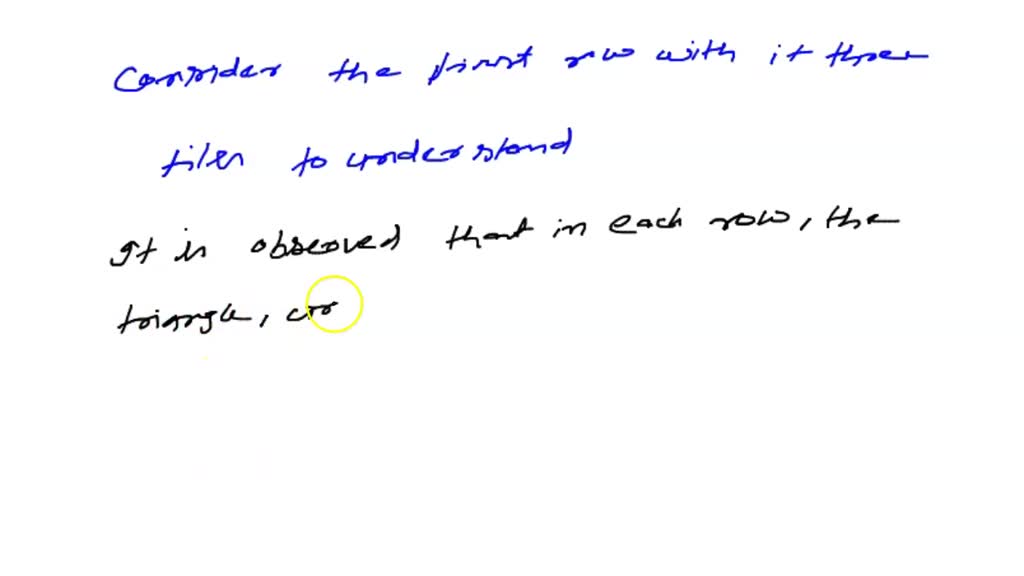 Consider the first row with it three
tiles to understand
It is observed that in each row, the
triangle, cro